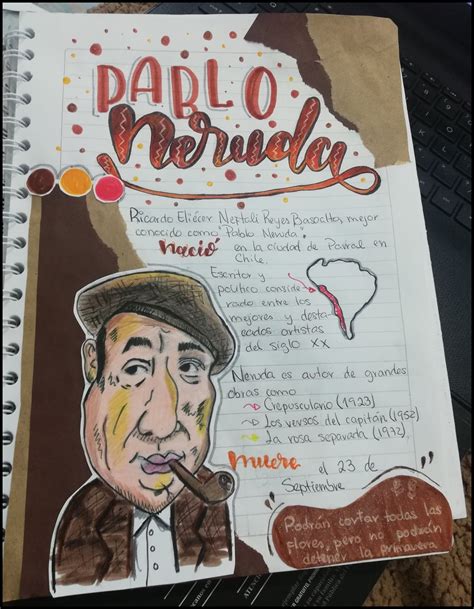 PABLO
Neruda
Ricardo Eliécer Neftali Reyes Basoalto, mejor
conocido como "Pablo Neruda".
Nació en la ciudad de Parral en
Chile.
Escritor y
político conside
rado entre los
mejores y desta
cados artistas
del siglo XX
Neruda es autor de grandes
obras como
Crepusculario (1923)
Los versos del capitán (1952)
La rosa separada (1972)
Muere el 23 de
Septiembre
Podrán cortar todas las
flores, pero no podrán
detener la primavera